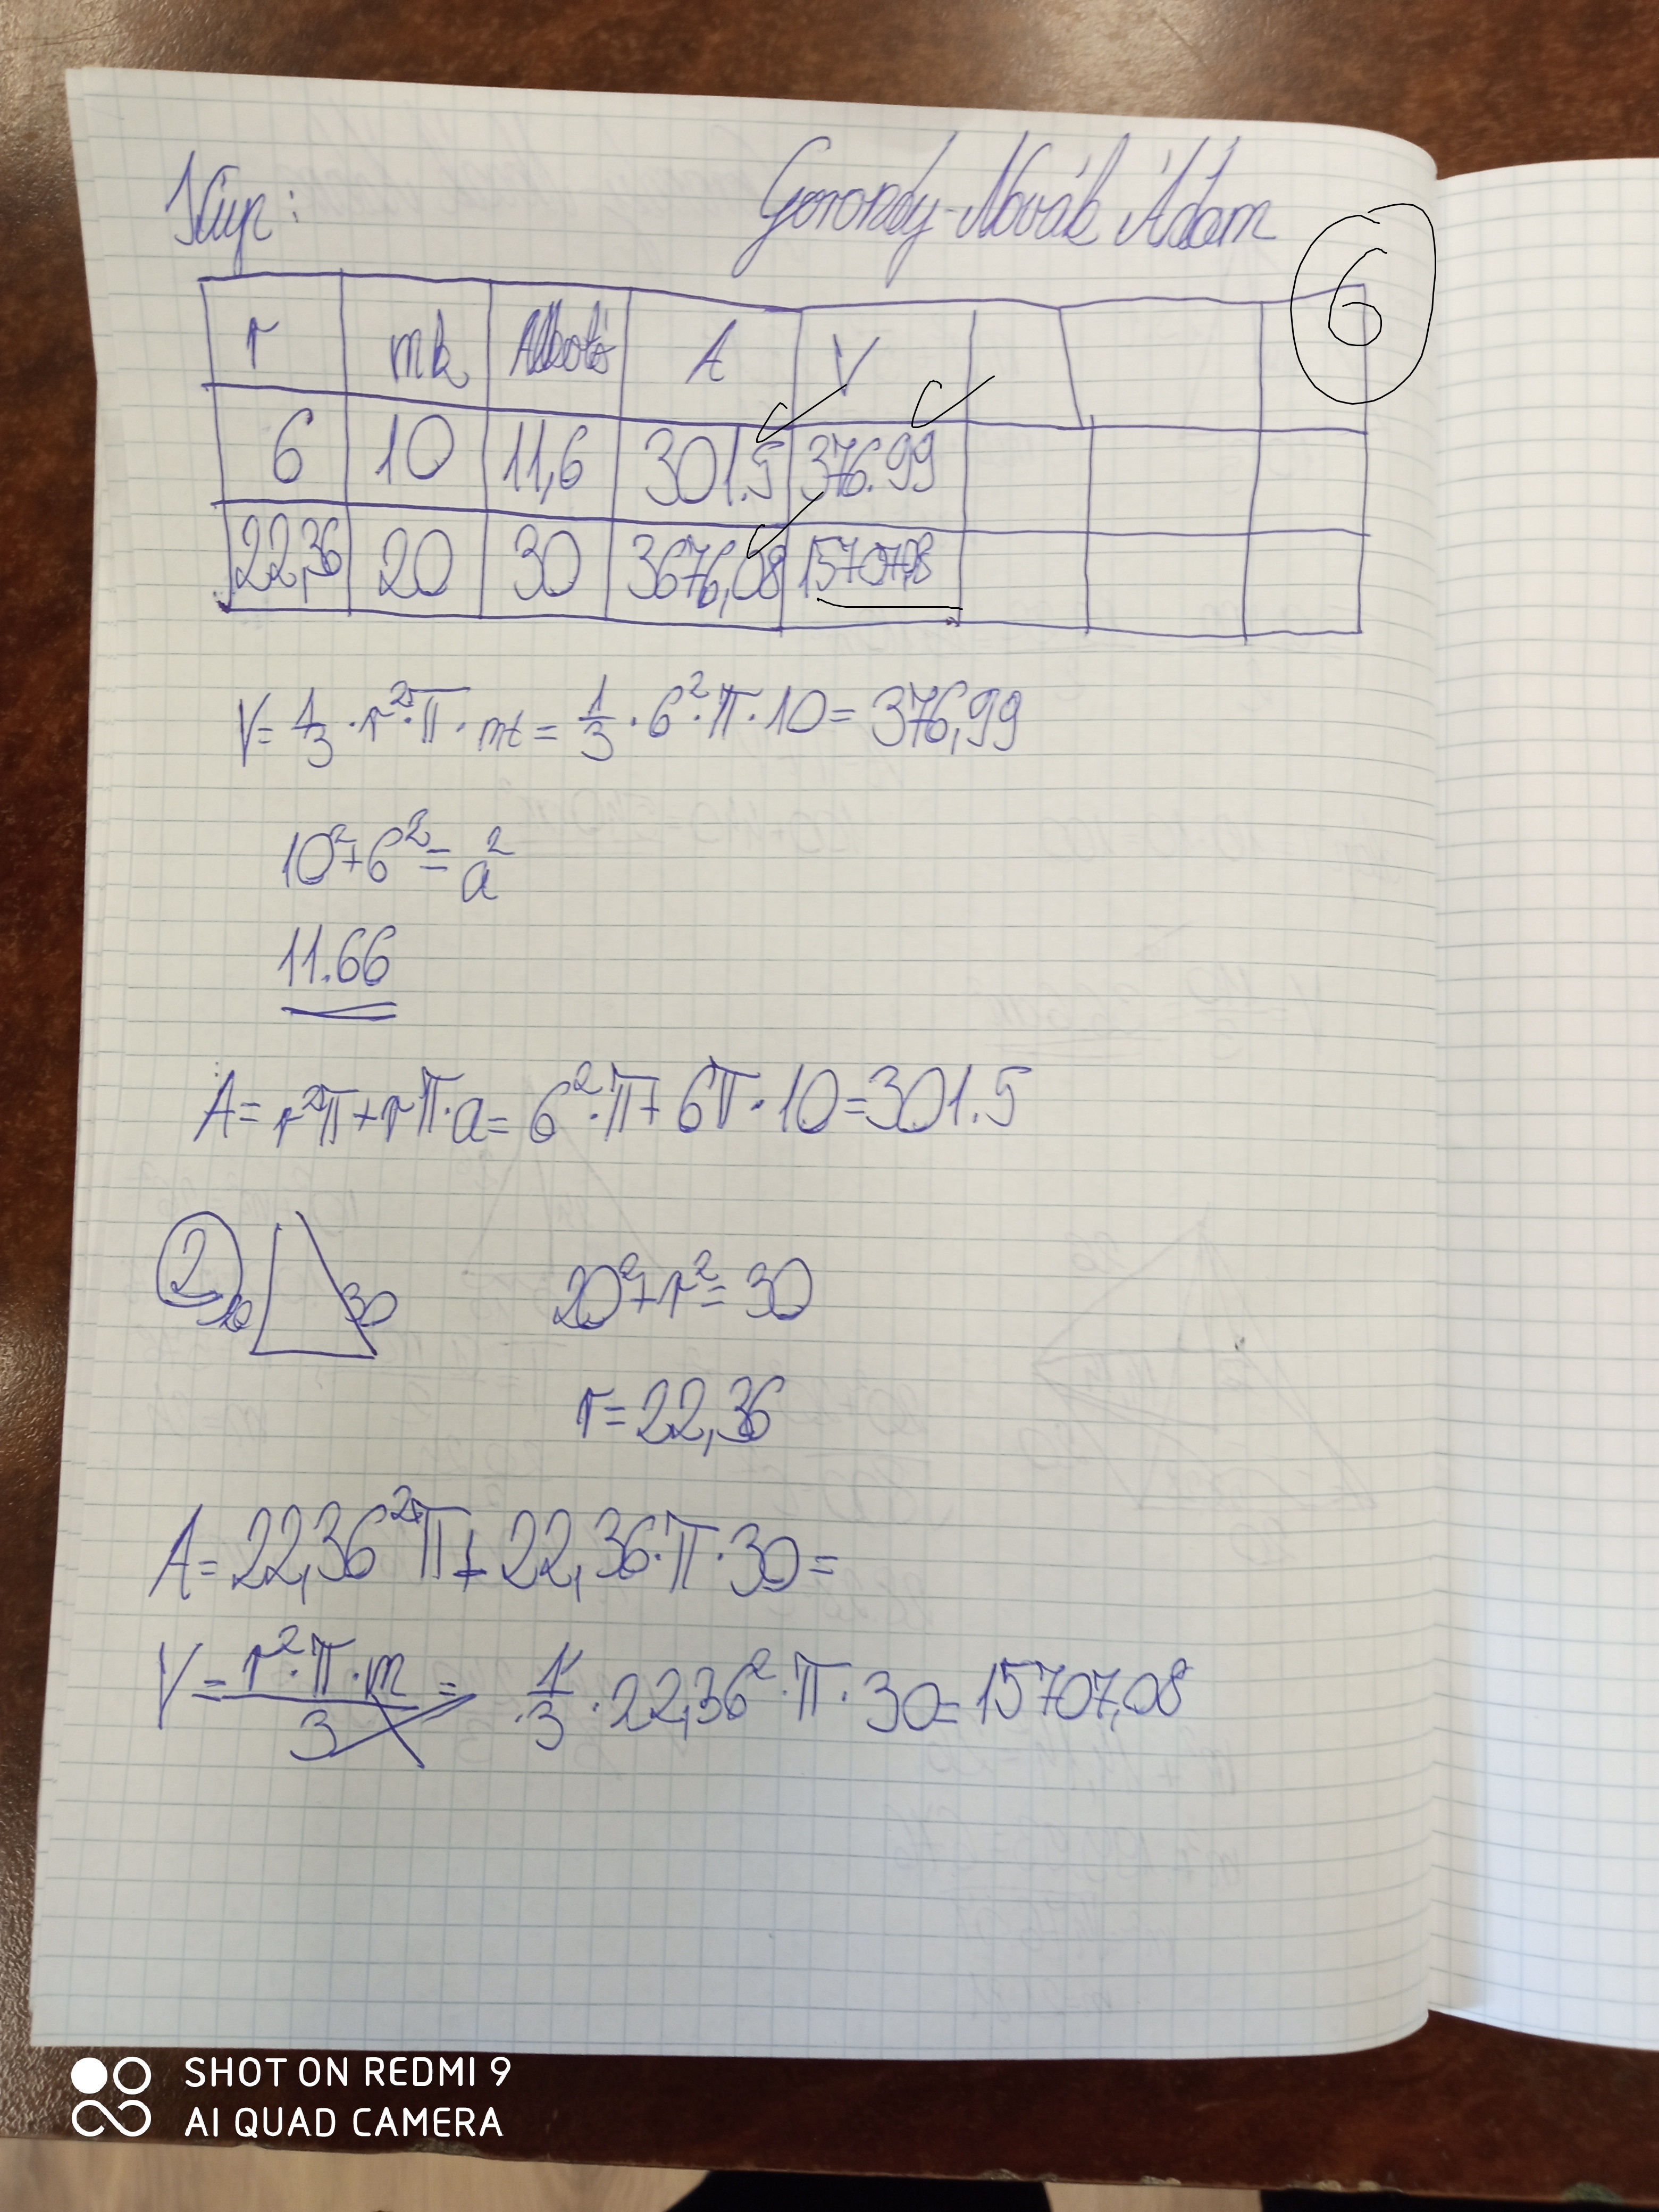 Kúp: Gorondy-Novák Ádám
6
r mk Alkotó A V
6 10 11,6 301.5 376.99
22,36 20 30 3676,08 15707,08
V= 1/3 · r²·π · mt = 1/3 · 6²·π·10= 376,99
10²+6²=a²
11.66
A= r²π+rπ·a= 6²·π+6π·10=301.5
2 20 30 20²+r²=30
r=22,36
A=22,36²π+22,36·π·30=
V= r²·π·m/3 = 1/3 ·22,36²·π·30=15707,08
SHOT ON REDMI 9
AI QUAD CAMERA